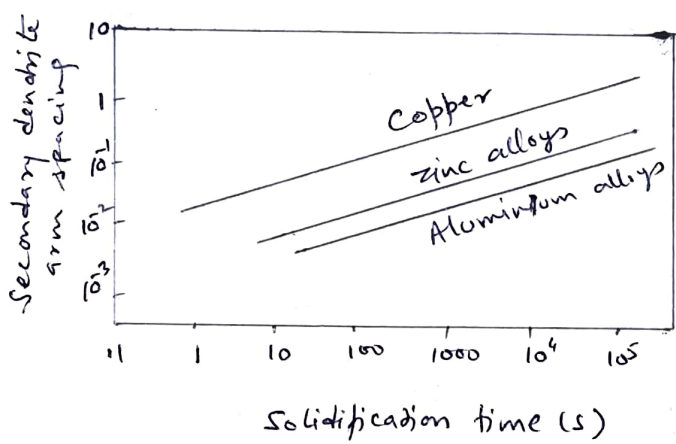 Secondary dendrite
arm spacing
10
1
10⁻¹
10⁻²
10⁻³
Copper
Zinc alloys
Aluminium alloys
.1 1 10 100 1000 10⁴ 10⁵
Solidification time (s)